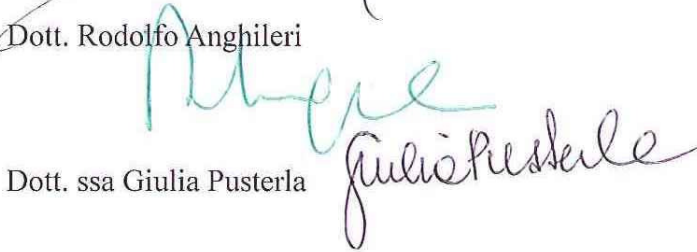 Dott. Rodolfo Anghileri
Dott. ssa Giulia Pusterla Giulia Pusterla